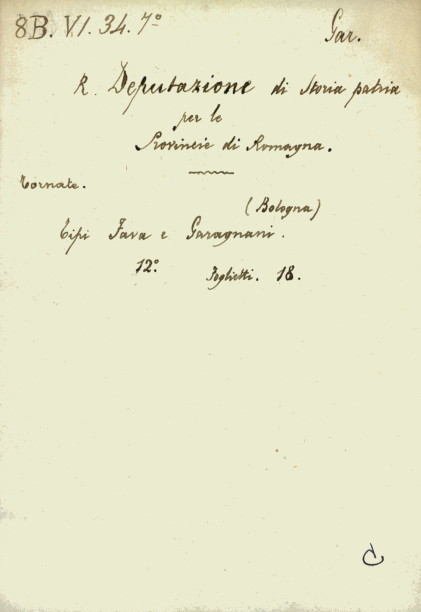 8B. VI. 34. 7º
Gar.
R. Deputazione di Storia patria
per le
Provincie di Romagna.
Tornate.
(Bologna)
Tipi Fava e Garagnani.
12º. Foglietti. 18.